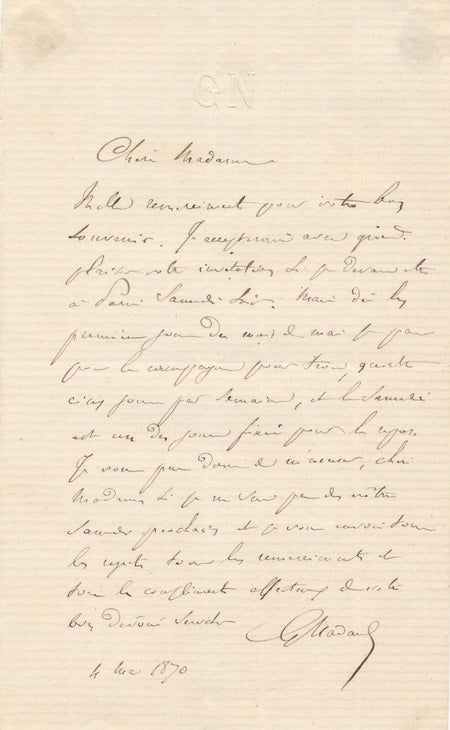 Chère Madame
Mille remerciements pour votre bon
souvenir. J'accepterais avec grand
plaisir votre invitation si je devais être
à Paris Samedi soir. Mais dès les
premiers jours du mois de mai je pars
pour la campagne pour trois, quatre
cinq jours par semaine, et le Samedi
est un des jours fixés pour le repos.
Je vous prie donc de m'excuser, chère
Madame si je ne suis pas des vôtres
samedi prochain et je vous envoie tous
les regrets tous les remerciements et
tous les compliments affectueux de votre
bien dévoué serviteur
G Nadaud
4 Mai 1870